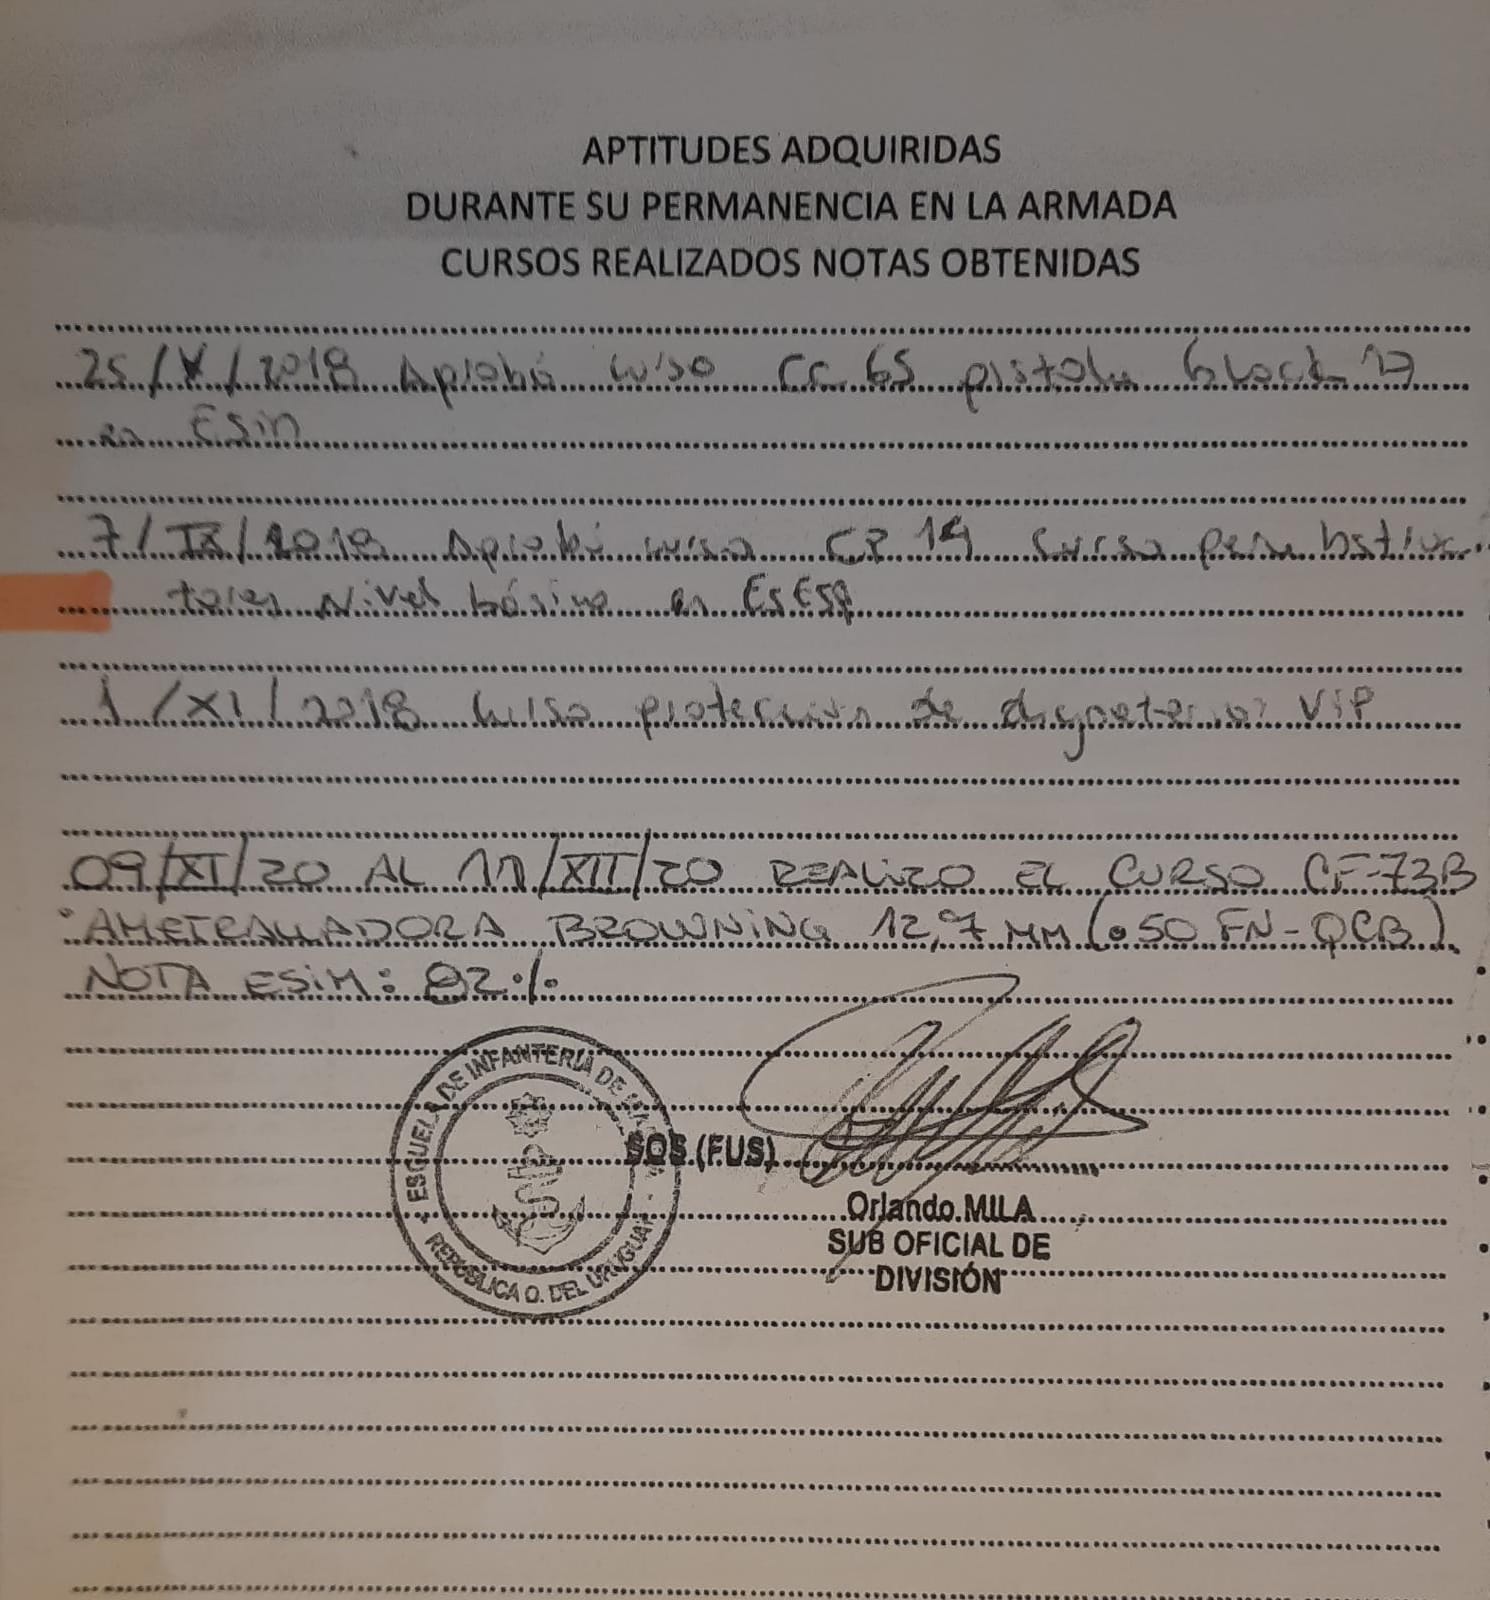 APTITUDES ADQUIRIDAS
DURANTE SU PERMANENCIA EN LA ARMADA
CURSOS REALIZADOS NOTAS OBTENIDAS
25/V/2018 Aprobó curso CC 65 pistola Glock 17
en ESIN
7/IX/2018 Aprobó curso CP 14 Curso para Instruc-
tores Nivel básico en ESESP
1/XI/2018 Curso protección de dignatarios VIP
09/XI/20 AL 11/XII/20 REALIZO EL CURSO CF-73B
"AMETRALLADORA BROWNING 12,7 MM (.50 FN-QCB).
NOTA ESIM: 82%
ESCUELA DE INFANTERIA DE
REPUBLICA O. DEL URUGUAY
SOS (FUS)
Orlando MILA
SUB OFICIAL DE
DIVISIÓN